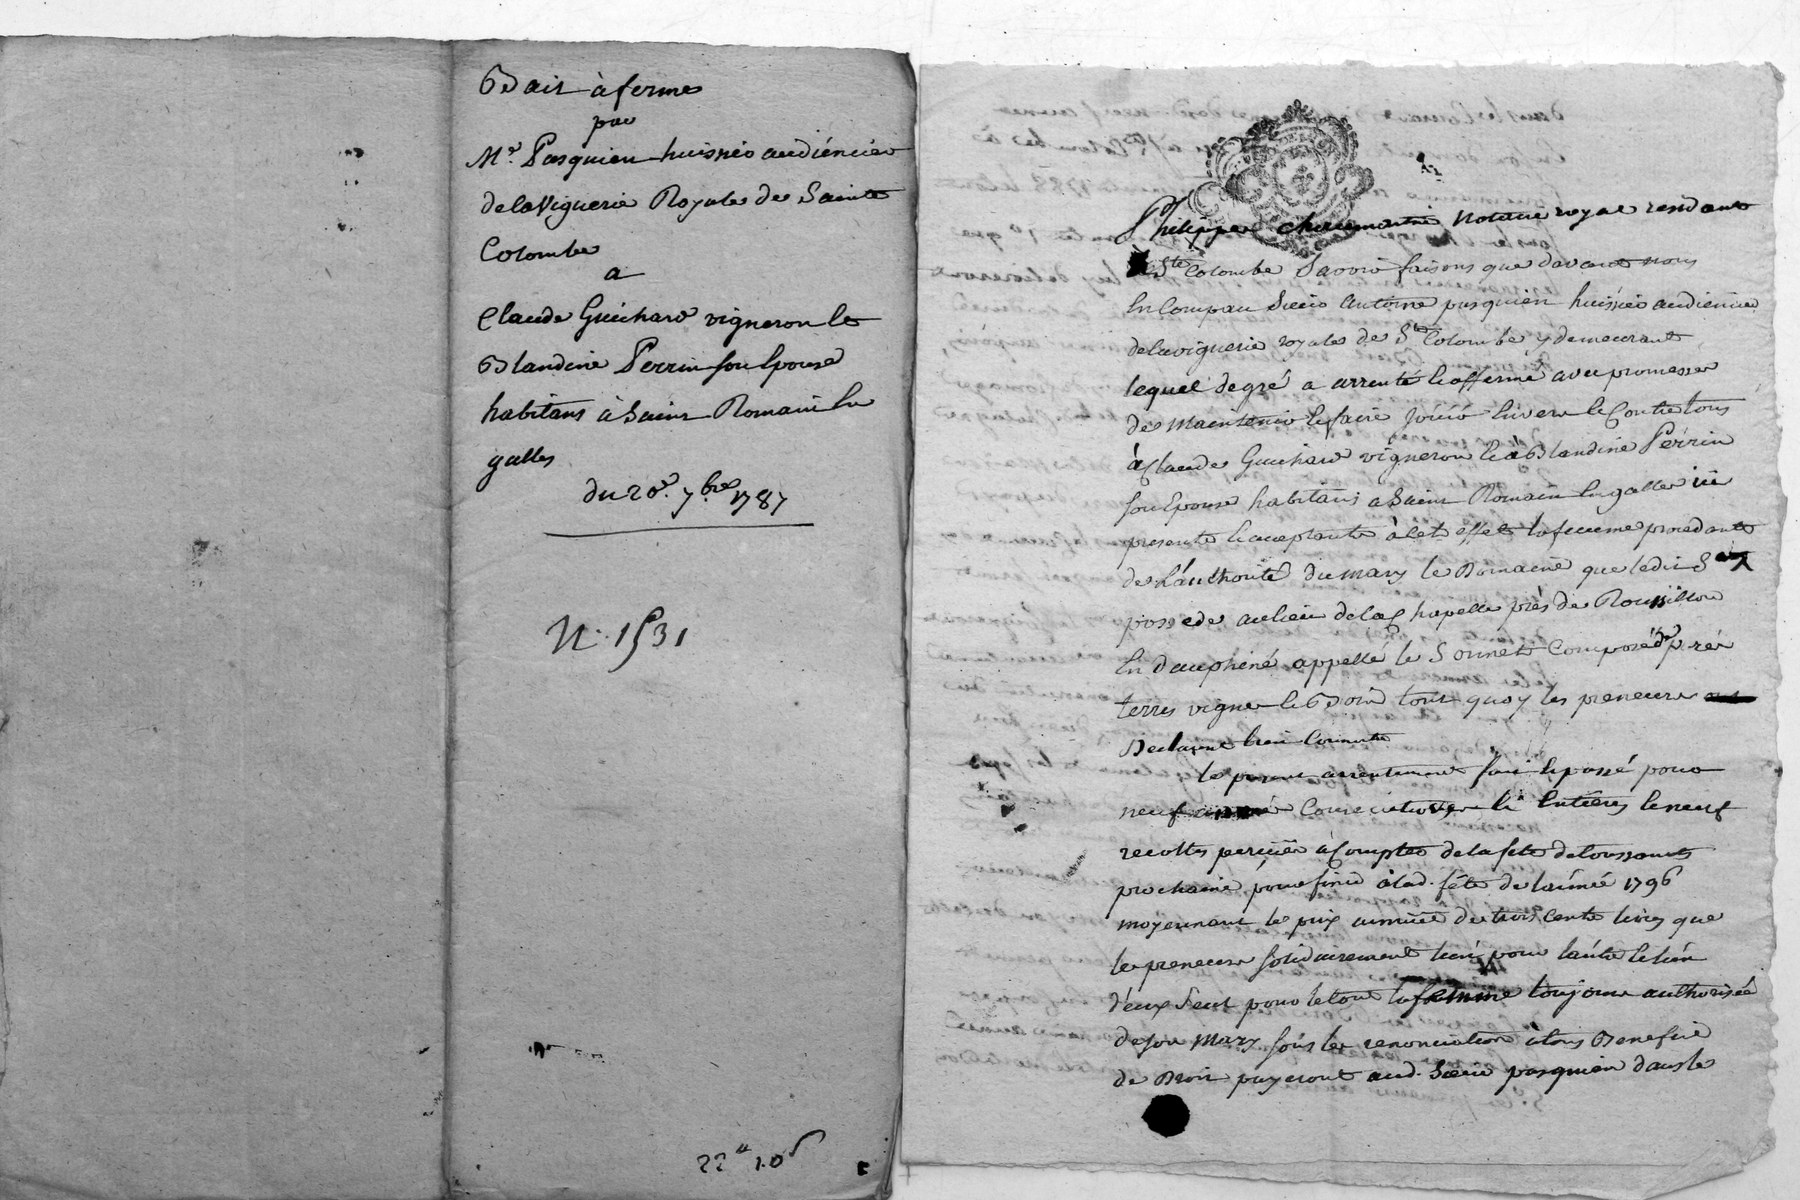 Bail à ferme
par
Mr. Pasquien huissier audiéncier
de la Viguerie Royale de Sainte
Colombe
a
Claude Guichard vigneron &
Blandine Perrin son Epouse
habitans à Saint Romain en
galles
du 20e. 7bre 1787
N. 1531
22" 10s
Philippe notaire royal residant
à Ste Colombe Savoir faisons que davant nous
En Comparu Sieur Antoine pasquien huissier audiencier
de la viguerie royale de Ste Colombe y demeurant
lequel de gré a arrenté & affermé avec promesse
de Maintenir & faire jouir Envers & Contre tous
à Claude Guichard vigneron & à Blandine Perrin
son Epouse habitans a Saint Romain En galle ici
presents & acceptants à Cet effet la femme procedante
de L'authorité du mary le Domaine que ledit Sr
possede au lieu de la Chapelle près de Roussillon
En dauphiné appellé le Sonnet Composé de prés
terres vigne & Bois tout quoy les preneurs
Declarent bien Connoitre
le present arrentement fait & passé pour
neuf année Consecutives & Entieres & neuf
recoltes perçües à Compter de la fete de toussaints
prochaine pour finir à lad. fête de l'année 1796
moyennant le prix annuel de trois Cents livres que
les preneurs solidairement l'un pour l'autre & l'un
d'eux Seul pour le tout la femme toujours authorisée
de son Mary sous les renonciation à tous Benefice
de Droit payeront aud. Sieur pasquien dans le